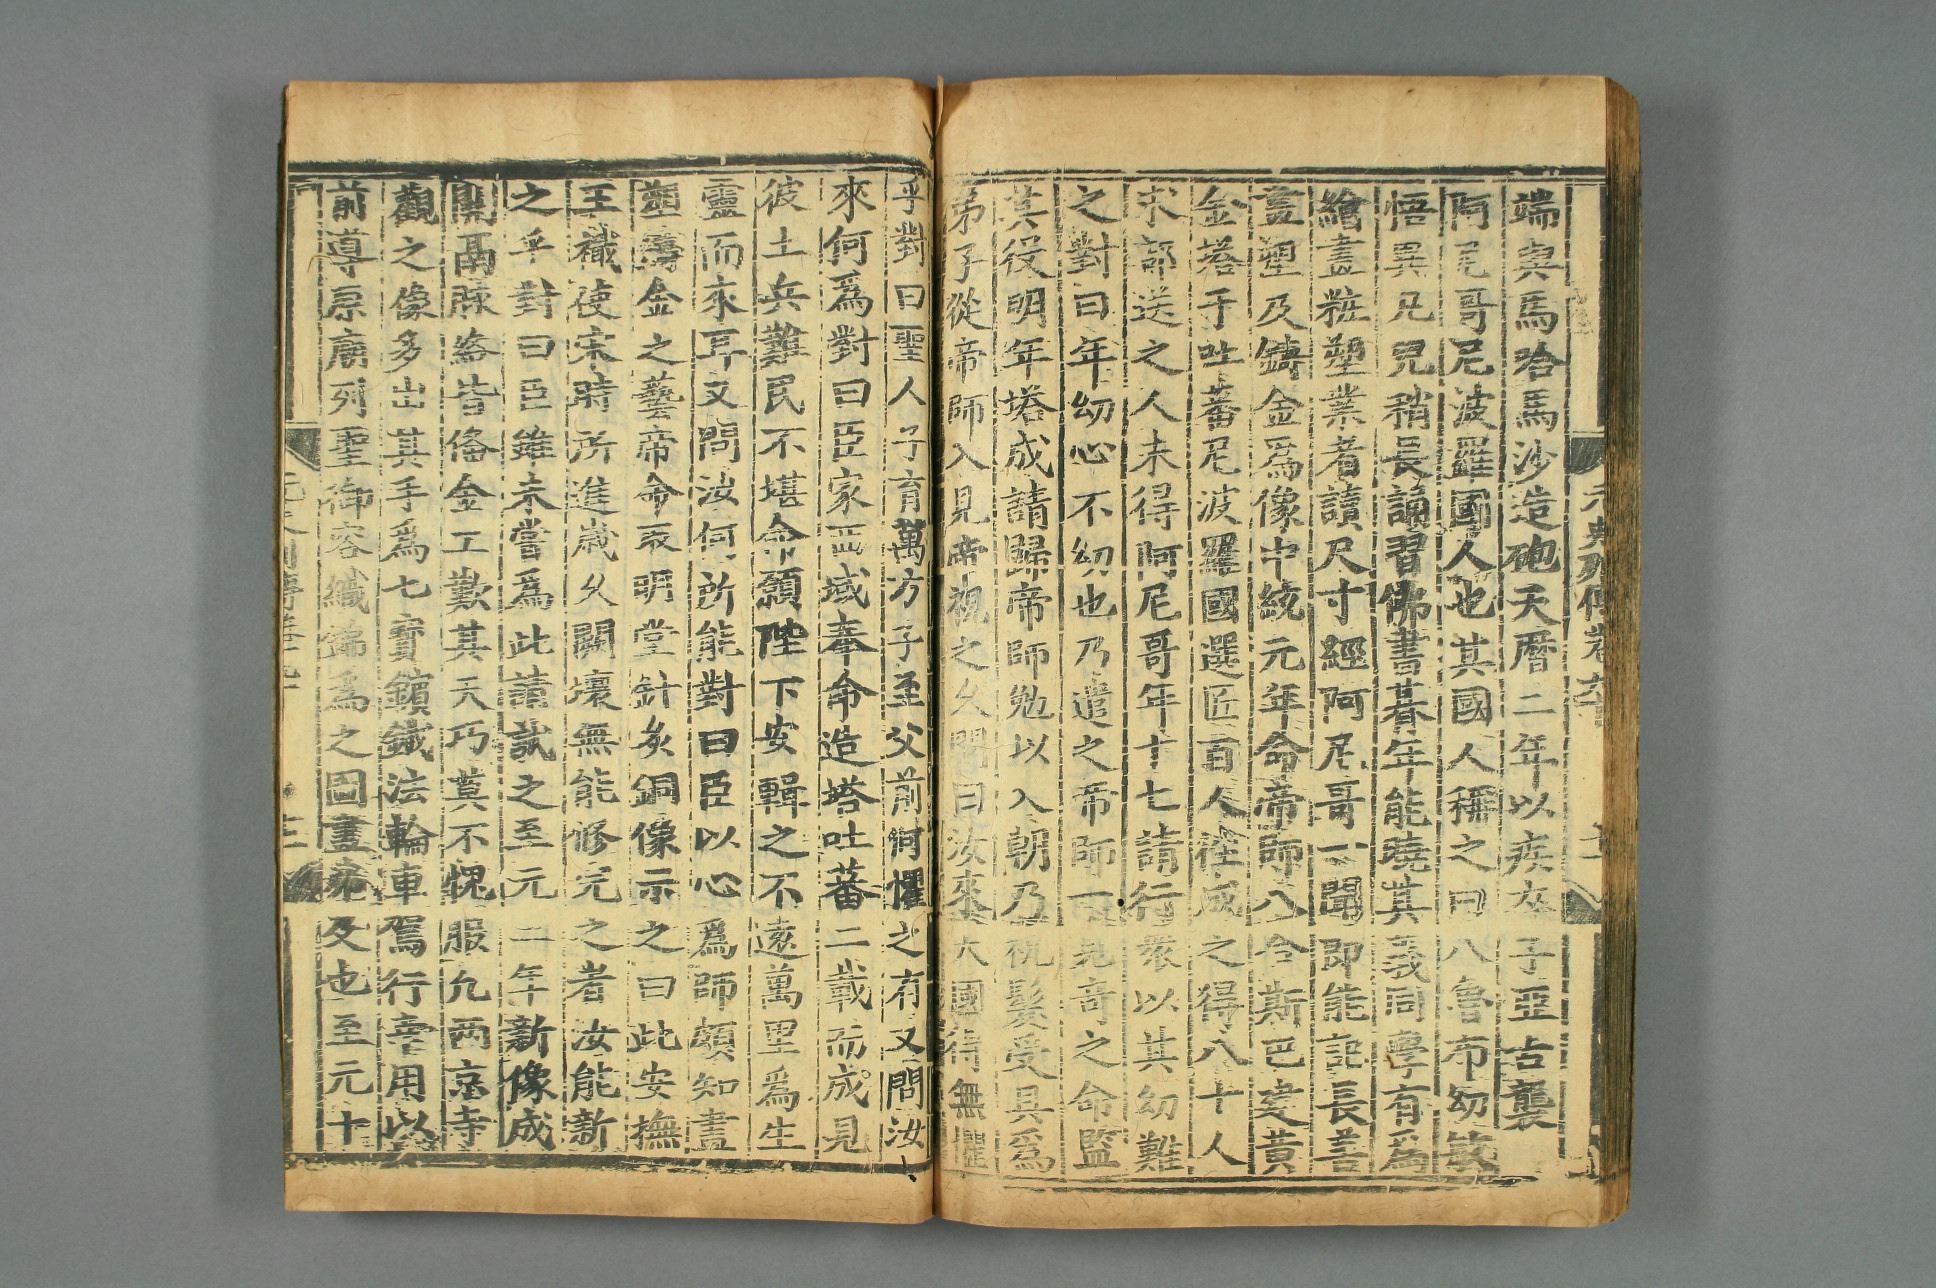 端奧馬哈馬沙造砲天曆二年以疾卒子亞古襲
阿尼哥尼波羅國人也其國人稱之曰八魯布幼敏
悟異凡兒稍長誦習佛書朞年能曉其義同學有爲
繪畫粧塑業者讀尺寸經阿尼哥一聞即能記長善
畫塑及鑄金爲像中統元年命帝師八合斯巴建黃
金塔于吐蕃尼波羅國選匠百人徃成之得八十人
求部送之人未得阿尼哥年十七請行衆以其幼難
之對曰年幼心不幼也乃遣之帝師一見奇之命監
其役明年塔成請歸帝師勉以入朝乃祝髮受具爲
弟子從帝師入見帝視之久問曰汝來大國得無懼
乎對曰聖人子育萬方子至父前何懼之有又問汝
來何爲對曰臣家西域奉命造塔吐蕃二載而成見
彼土兵難民不堪命願陛下安輯之不遠萬里爲生
靈而來耳又問汝何所能對曰臣以心爲師頗知畫
塑鑄金之藝帝命取明堂針灸銅像示之曰此安撫
王檝使宋時所進歲久闕壞無能修完之者汝能新
之乎對曰臣雖未嘗爲此請試之至元二年新像成
關鬲脉絡皆備金工歎其天巧莫不愧服凡兩京寺
觀之像多出其手爲七寶鑌鐵法輪車駕行幸用以
前導原廟列聖御容織錦爲之圖畫弗及也至元十